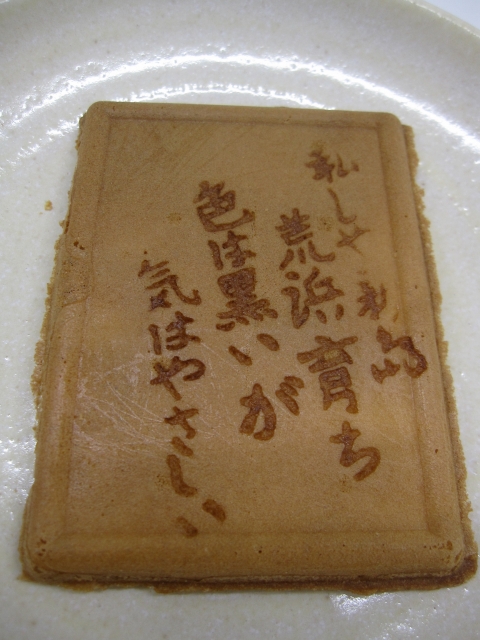 私しゃ新島
荒浜育ち
色は黒いが
気はやさしい